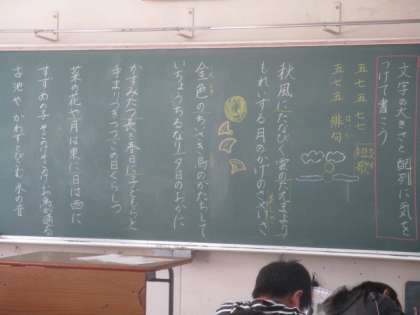 文字の大きさと配列に気を
つけて書こう
五七五七七 短歌
五七五 俳句
秋風にたなびく雲のたえまより
もれいずる月のかげのさやけさ
金色のちいさき鳥のかたちして
いちょうちるなり夕日のおかに
かすみたつ長き春日に子どもらと
手まりつきつつこの日くらしつ
菜の花や月は東に日は西に
すずめの子そこのけそこのけお馬が通る
古池やかわずとびこむ水の音